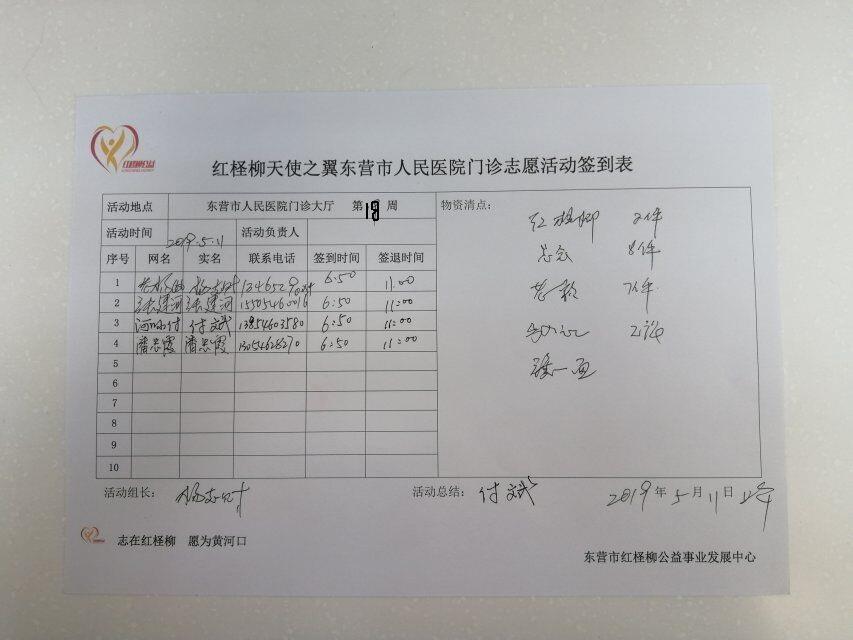 红柽柳天使之翼东营市人民医院门诊志愿活动签到表
活动地点 东营市人民医院门诊大厅 第19周
活动时间 2019.5.11 活动负责人
序号 网名 实名 联系电话 签到时间 签退时间
1 6:50 11:00
2 张建河 张建河 15505460016 6:50 11:00
3 付斌 13854603580 6:50 11:00
4 潘忠霞 潘忠霞 13054628270 6:50 11:00
5
6
7
8
9
10
物资清点：
红柽柳 2件
8件
7件
活动组长：
活动总结： 付斌 2019年5月11日
志在红柽柳 愿为黄河口
东营市红柽柳公益事业发展中心